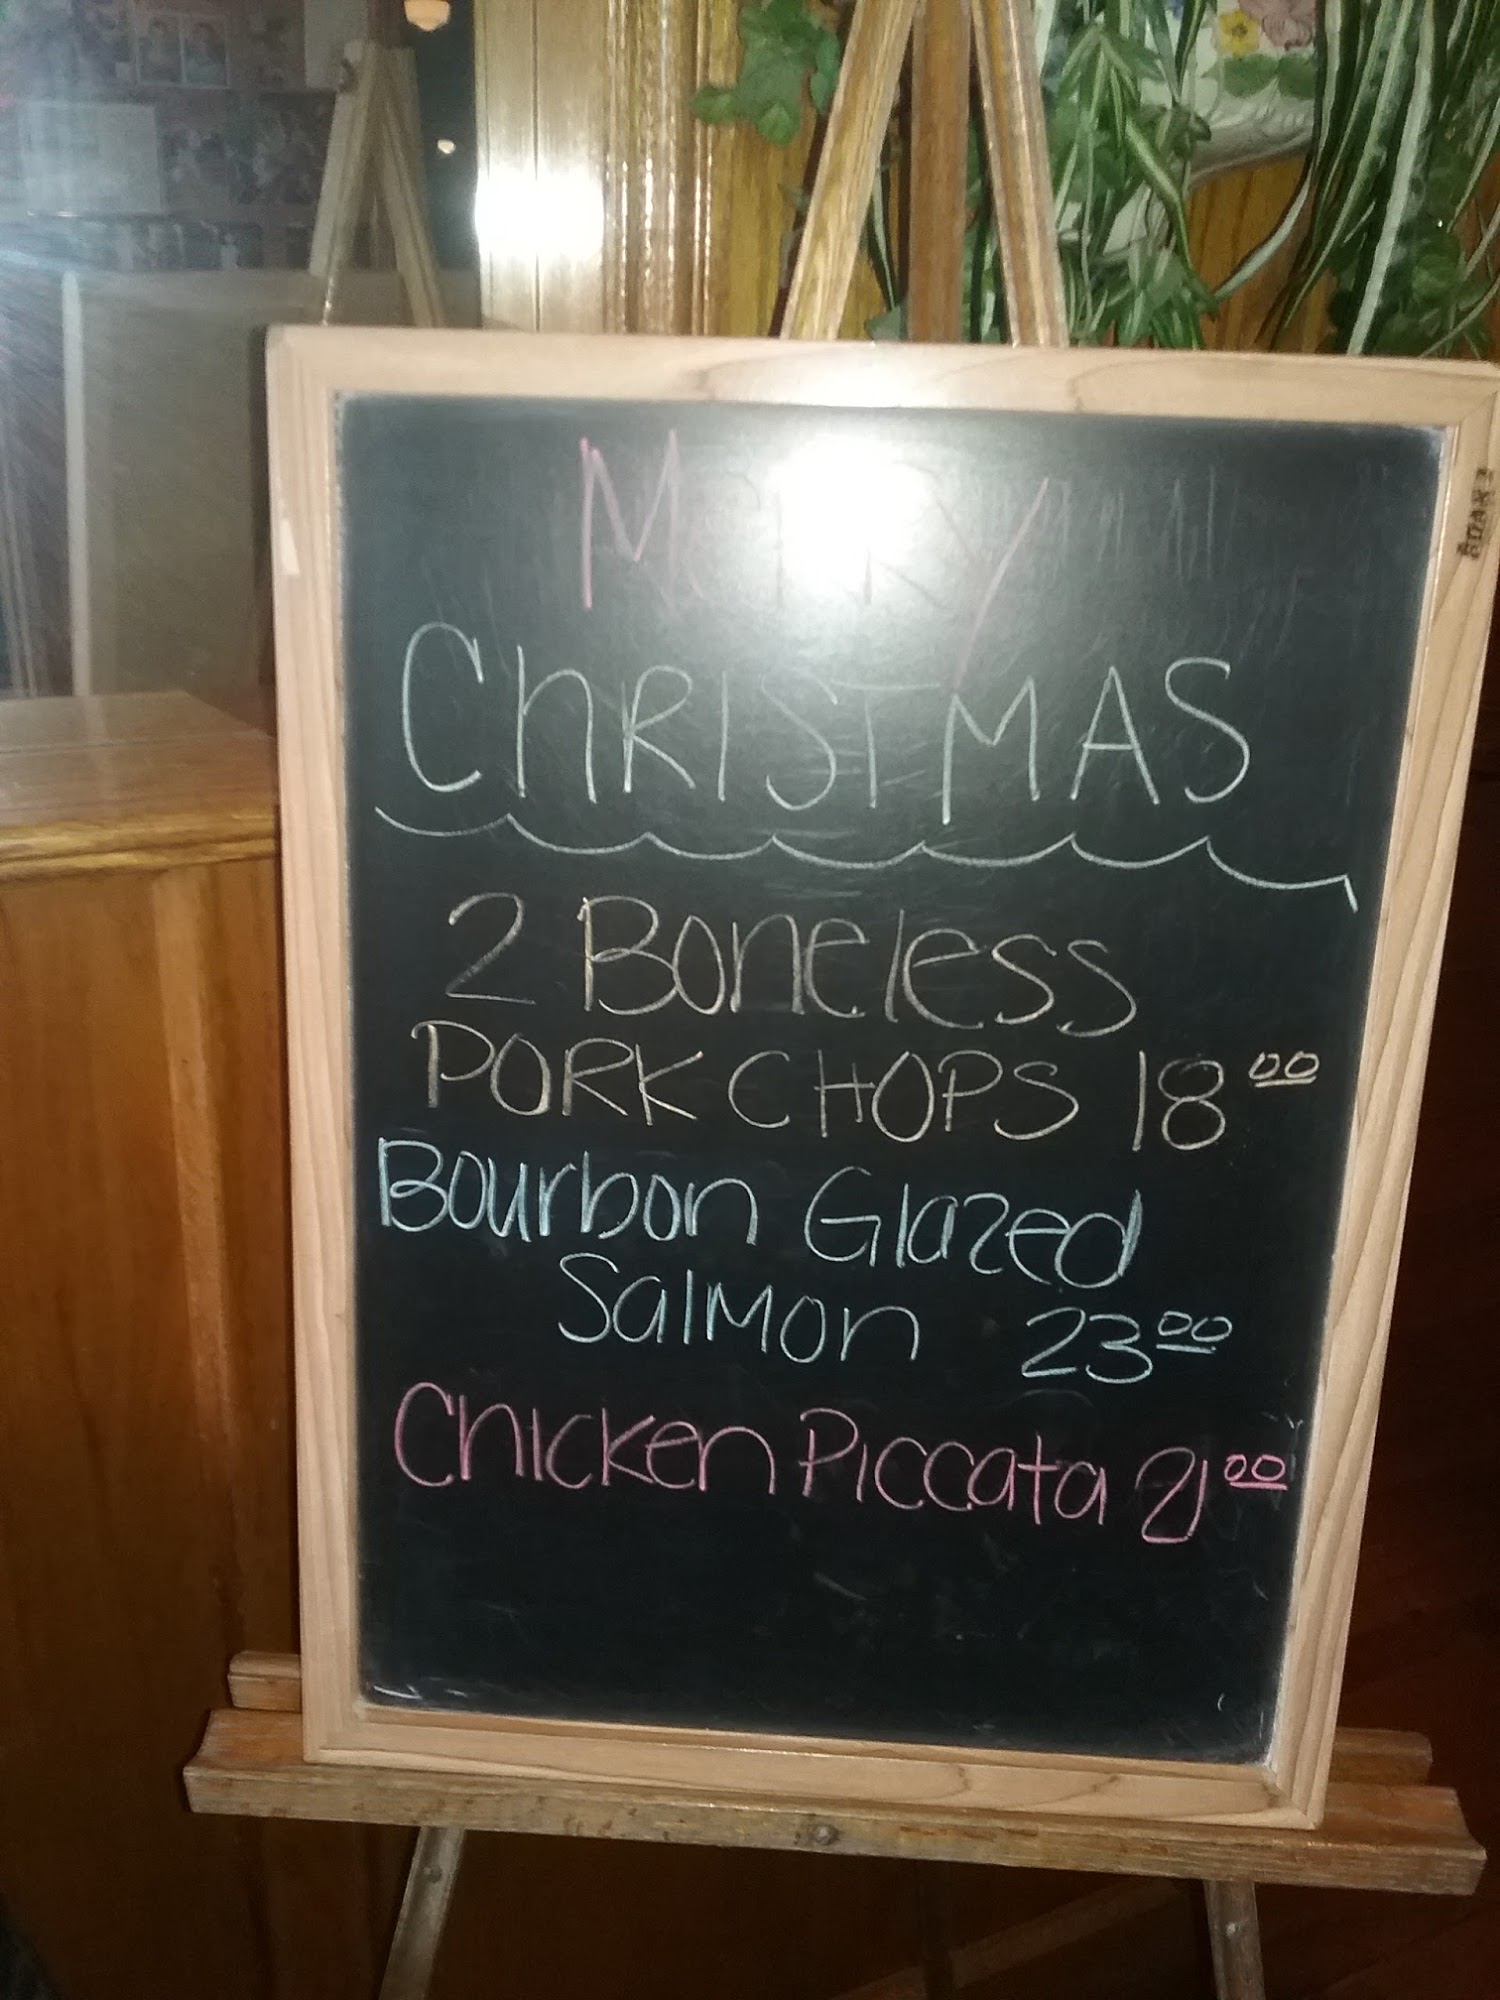 Merry
ChRISTMAS
2 Boneless
PORK CHOPS 18 00
Bourbon Glazed
Salmon 23 00
Chicken Piccata 21 00